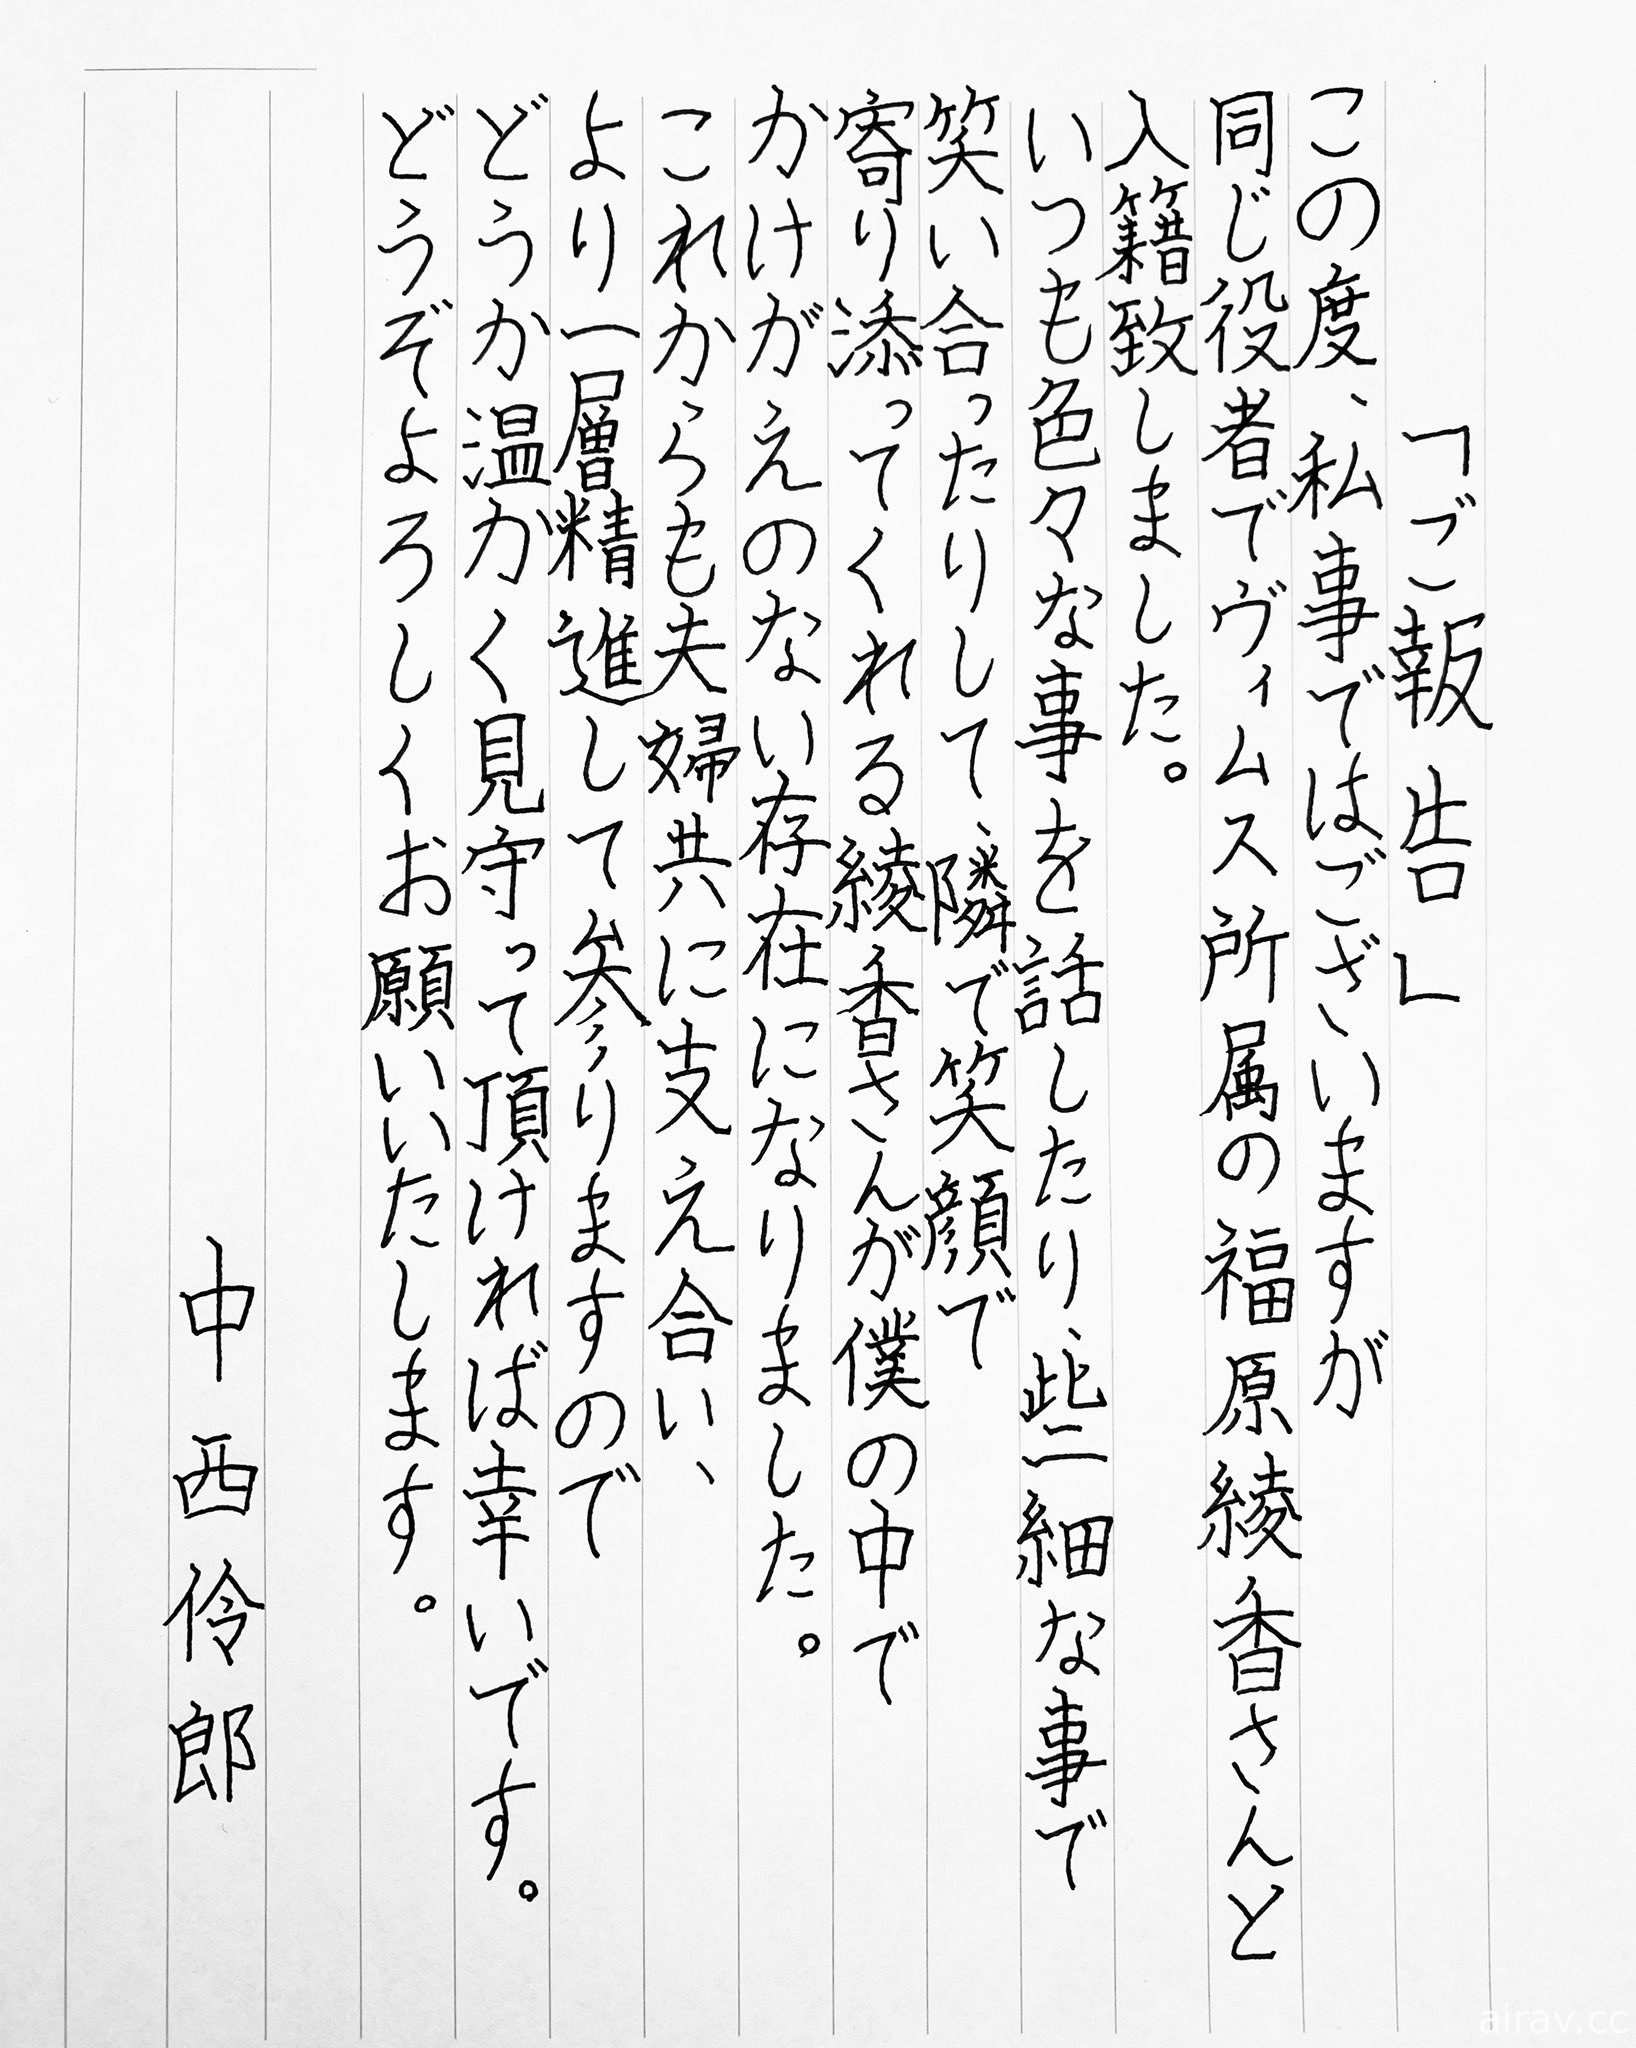 「ご報告」
この度、私事ではございますが
同じ役者でヴィムス所属の福原綾香さんと
入籍致しました。
いつも色々な事を話したり、些細な事で
笑い合ったりして、隣で笑顔で
寄り添ってくれる綾香さんが僕の中で
かけがえのない存在になりました。
これからも夫婦共に支え合い、
より一層精進して参りますので
どうか温かく見守って頂ければ幸いです。
どうぞよろしくお願いいたします。
中西伶郎
airav.cc